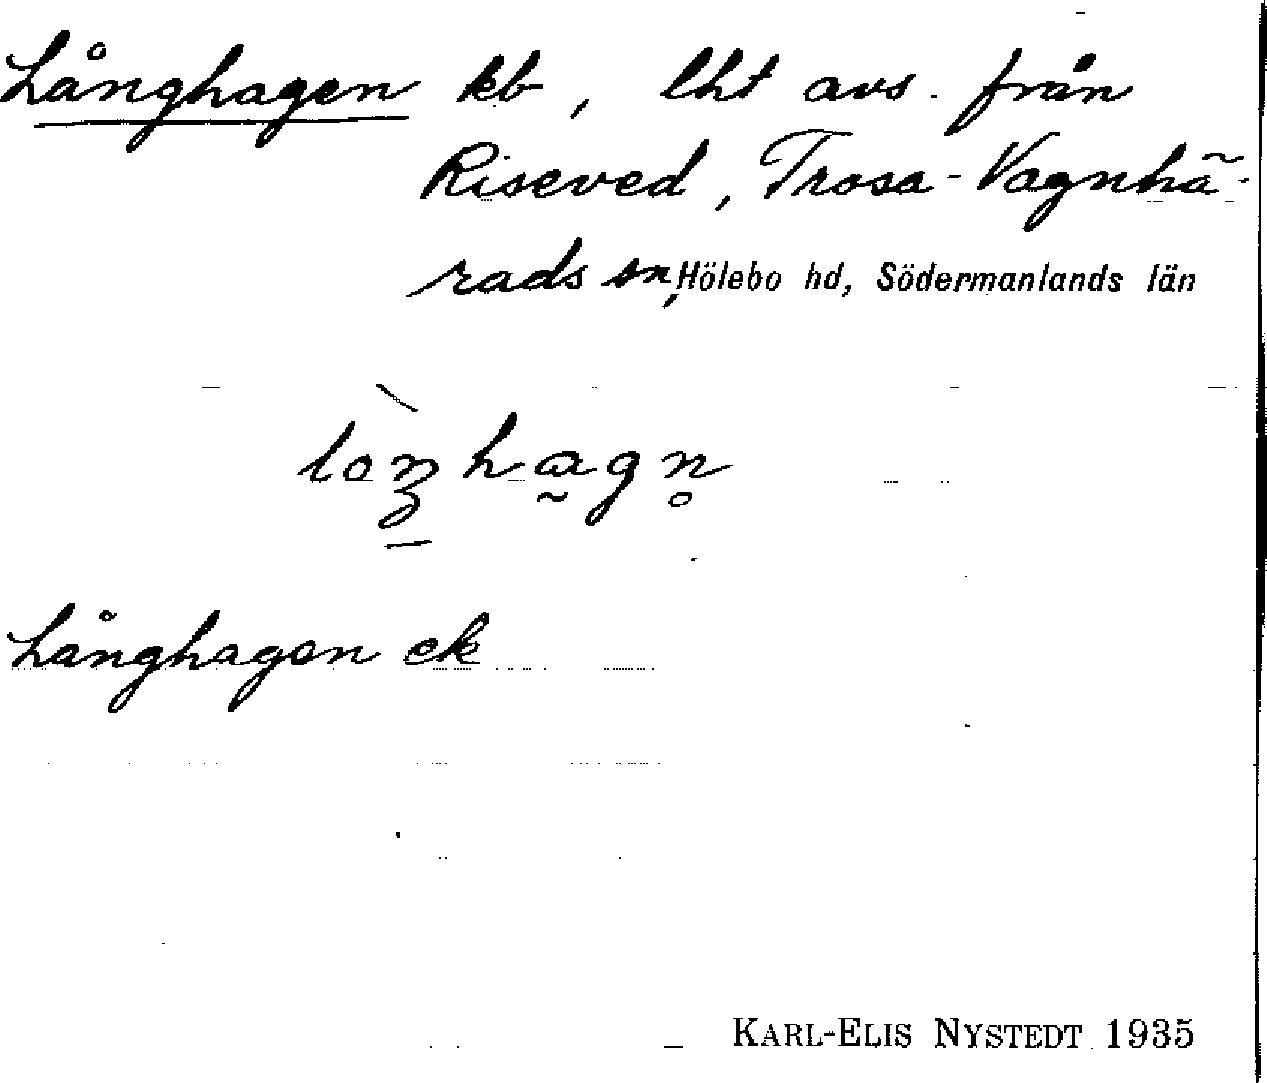 Långhagen kb, lht avs. från
Riseved, Trosa-Vagnhä-
rads sn, Hölebo hd, Södermanlands län
lòŋhagn̥
Långhagen ek
KARL-ELIS NYSTEDT 1935